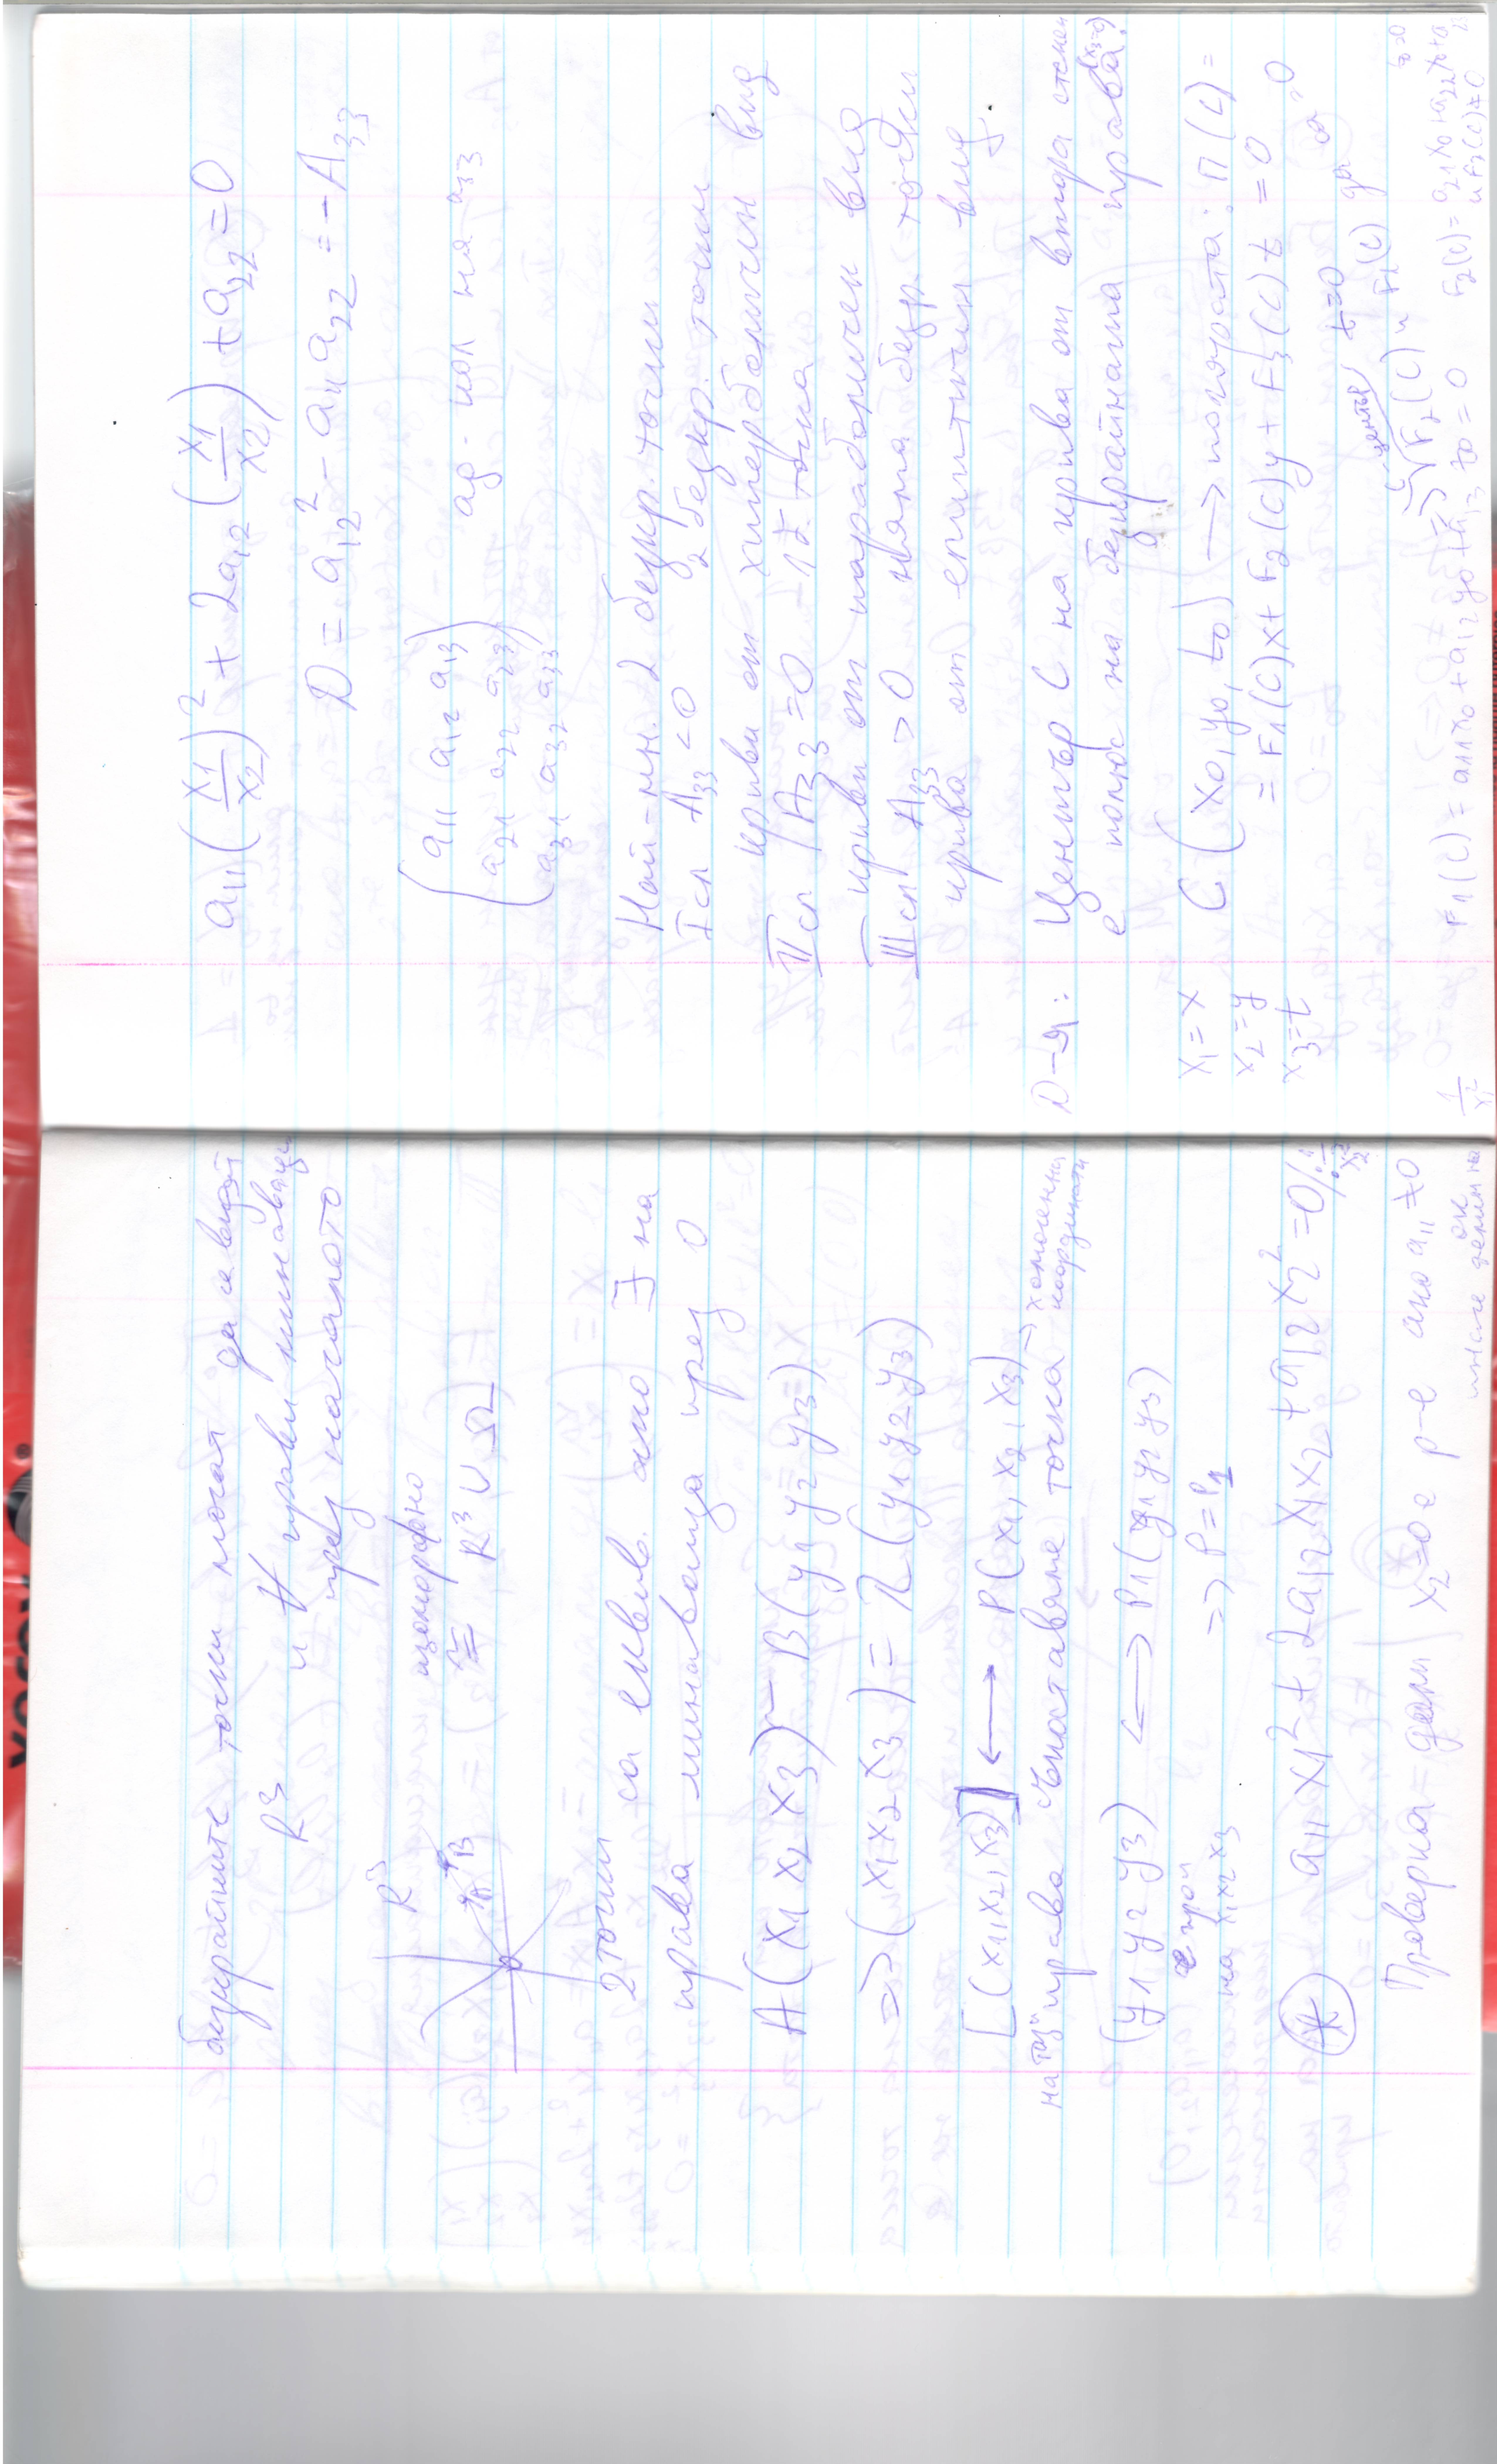 безкрайните точки могат да се въвед
R³ и ∀ прави минаващи
през началото
R³
изоморфно
≅ R³ ∪ Ω
A
B
0
2 точки са еквив. ако ∃ на
права минаваща през 0
A(x1 x2 x3) ~ B(y1 y2 y3)
=> (x1 x2 x3) = λ(y1 y2 y3)
[(x1, x2, x3)] ⟷ P(x1, x2, x3)
на таз" права съпоставяне точка → хомогенни координати
(y1 y2 y3) ⟷ P1(y1 y2 y3)
на x1 x2 x3 => P = P1
(*) a11 x1² + 2a12 x1x2 + a12 x2² = 0 /: 1/x2²
Проверка – дали x2=0 е р-е ако a11 ≠ 0
може делим на
1/x2²
a11 (x1/x2)² + 2a12 (x1/x2) + a22 = 0
D = a12² - a11 a22 = - A33
(a11 a12 a13
a21 a22 a23
a31 a32 a33)
ад. кол на a33
Най-мн. 2 безкр. точки
I сл A33 < 0 2 безкр. точки
криви от хиперболичен вид
II сл A33 = 0 – 1 т. точка
криви от параболичен вид
III сл A33 > 0 няма безкр. точки
крива от елиптичен вид.
D-я: Център C на крива от втора степен
е полюс на безкрайната права. (x3=0)
x1 = x
x2 = y
x3 = t
C(x0, y0, t0) → полярата: π(C) =
= F1(C)x + F2(C)y + F3(C)t = 0
център t=0
F2(C) и F1(C)
F1(C) = a11x0 + a12y0 + a13 t0 = 0
F2(C) = a21x0 + a22y0 + a23
и F3(C) ≠ 0
t0=0